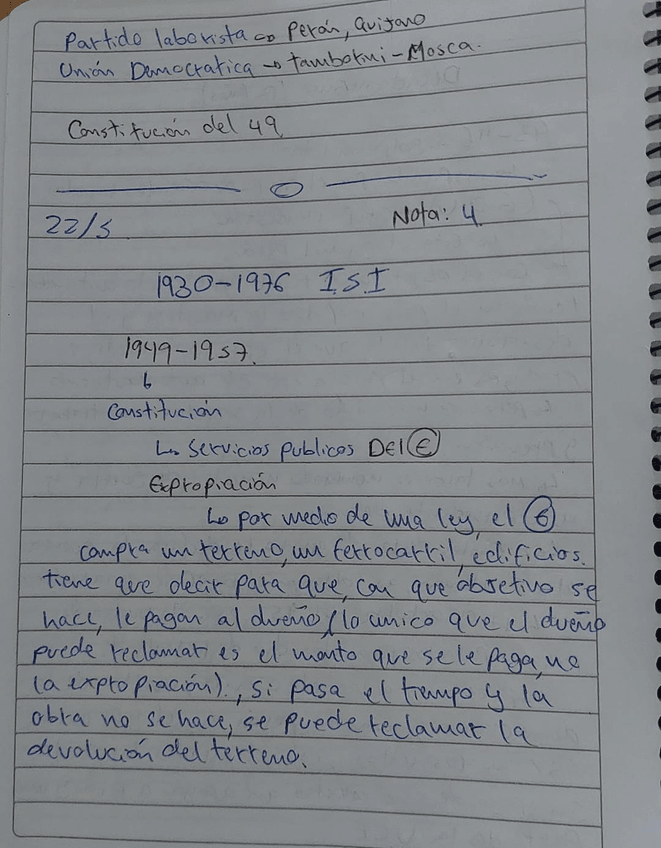 Partido laborista → Perón, Quijano
Unión Democratica → tamborini - Mosca.
Constitución del 49
22/5
Nota: 4
1930-1976 I.S.I
1949-1957.
↳
Constitución
↳ Servicios publicos Del Ⓔ
Expropiación
↳ por medio de una ley, el Ⓔ
compra un terreno, un ferrocarril, edificios.
tiene que decir para que, con que objetivo se
hace, le pagan al dueño (lo unico que el dueño
puede reclamar es el monto que se le paga, no
la expropiación)., si pasa el tiempo y la
obra no se hace, se puede reclamar la
devolución del terreno.